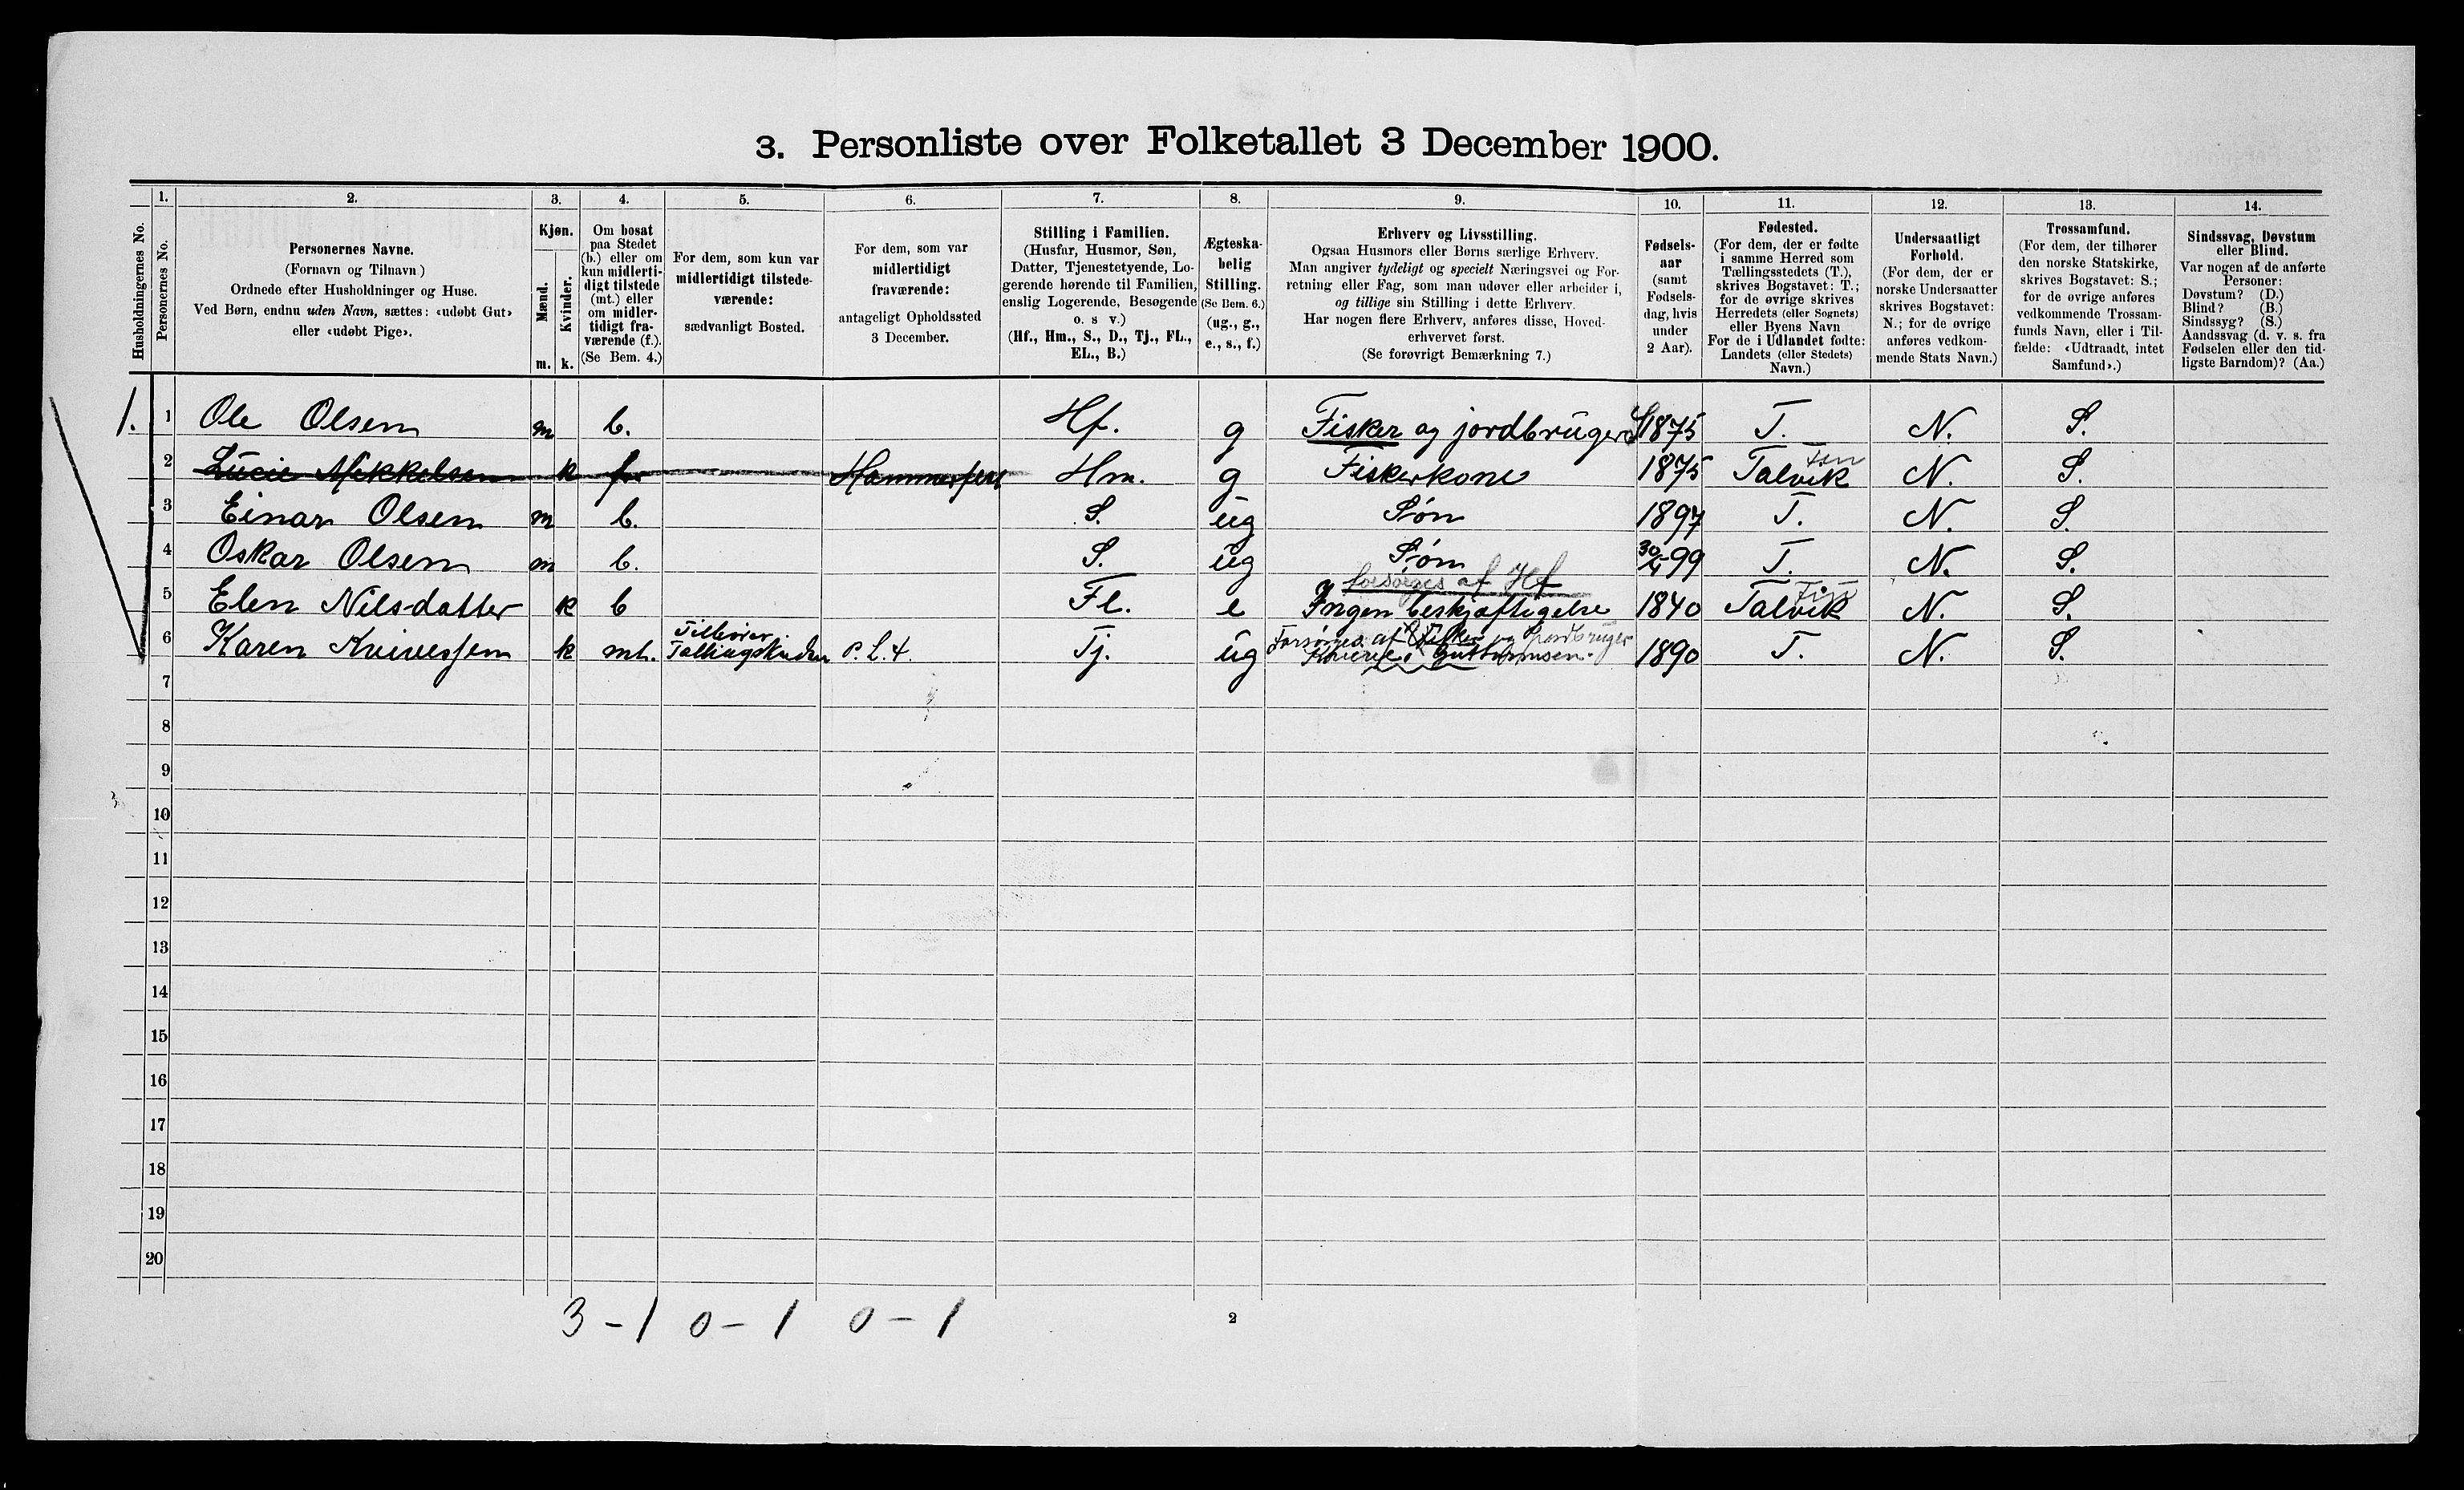 3. Personliste over Folketallet 3 December 1900.
1. 2. 3. 4. 5. 6. 7. 8. 9. 10. 11. 12. 13. 14.
Husholdningernes No.
Personernes No.
Personernes Navne.
(Fornavn og Tilnavn)
Ordnede efter Husholdninger og Huse.
Ved Børn, endnu uden Navn, sættes: «udøbt Gut»
eller «udøbt Pige».
Kjøn.
Mænd.
Kvinder.
m. k.
Om bosat
paa Stedet
(b.) eller om
kun midlerti-
digt tilstede
(mt.) eller
om midler-
tidigt fra-
værende (f.).
(Se Bem. 4.)
For dem, som kun var
midlertidigt tilstede-
værende:
sædvanligt Bosted.
For dem, som var
midlertidigt
fraværende:
antageligt Opholdssted
3 December.
Stilling i Familien.
(Husfar, Husmor, Søn,
Datter, Tjenestetyende, Lo-
gerende hørende til Familien,
enslig Logerende, Besøgende
o. s v.)
(Hf., Hm., S., D., Tj., FL.,
EL., B.)
Ægteska-
belig
Stilling.
(Se Bem. 6.)
(ug., g.,
e., s., f.)
Erhverv og Livsstilling.
Ogsaa Husmors eller Børns særlige Erhverv.
Man angiver tydeligt og specielt Næringsvei og For-
retning eller Fag, som man udøver eller arbeider i,
og tillige sin Stilling i dette Erhverv.
Har nogen flere Erhverv, anføres disse, Hoved-
erhvervet først.
(Se forøvrigt Bemærkning 7.)
Fødsels-
aar
(samt
Fødsels-
dag, hvis
under
2 Aar).
Fødested.
(For dem, der er fødte
i samme Herred som
Tællingsstedets (T.),
skrives Bogstavet: T.;
for de øvrige skrives
Herredets (eller Sognets)
eller Byens Navn
For de i Udlandet fødte:
Landets (eller Stedets)
Navn.)
Undersaatligt
Forhold.
(For dem, der er
norske Undersaatter
skrives Bogstavet:
N.; for de øvrige
anføres vedkom-
mende Stats Navn.)
Trossamfund.
(For dem, der tilhører
den norske Statskirke,
skrives Bogstavet: S.;
for de øvrige anføres
vedkommende Trossam-
funds Navn, eller i Til-
fælde: «Udtraadt, intet
Samfund».)
Sindssvag, Døvstum
eller Blind.
Var nogen af de anførte
Personer:
Døvstum? (D.)
Blind? (B.)
Sindssyg? (S.)
Aandssvag (d. v. s. fra
Fødselen eller den tid-
ligste Barndom)? (Aa.)
1. 1 Ole Olsen m b. Hf. g Fisker og jordbruger 1875 T. N. S.
2 Lucie Mikkelsen k f Hammerfest Hm. g Fiskerkone 1875 Talvik N. S.
3 Einar Olsen m b. S. ug Søn 1897 T. N. S.
4 Oskar Olsen m b. S. ug Søn 99 T. N. S.
forsørges af Hf
5 Elen Nilsdatter k b Fl. e Ingen beskjæftigelse 1840 Talvik N. S.
6 Karen k mt. Tj. ug Forsørges af Fisker og Jordbruger 1890 T. N. S.
7
8
9
10
11
12
13
14
15
16
17
18
19
20
3 - 1 0 - 1 0 - 1
2